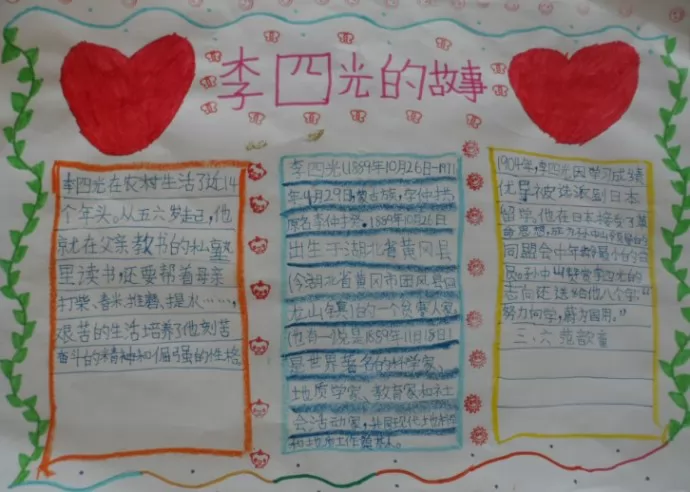 李四光的故事
李四光在农村生活了近14
个年头。从五六岁起,他
就在父亲教书的私塾
里读书,还要帮着母亲
打柴、舂米、推磨、提水……,
艰苦的生活培养了他刻苦
奋斗的精神和倔强的性格
李四光(1889年10月26日-1971
年4月29日),蒙古族,字仲拱,
原名李仲揆,1889年10月26日
出生于湖北省黄冈县
(今湖北省黄冈市团风县回
龙山镇)的一个贫寒人家
(也有一说是1889年11月18日)
是世界著名的科学家、
地质学家、教育家和社
会活动家,
和地质工作奠基人。
1904年,李四光因学习成绩
优异被选派到日本
留学。他在日本接受了革
命思想,成为孙中山领导的
同盟会中年龄最小的会
员。孙中山赞赏李四光的
志向还送给他八个字:“
努力向学,蔚为国用。”
三、六 范歆童